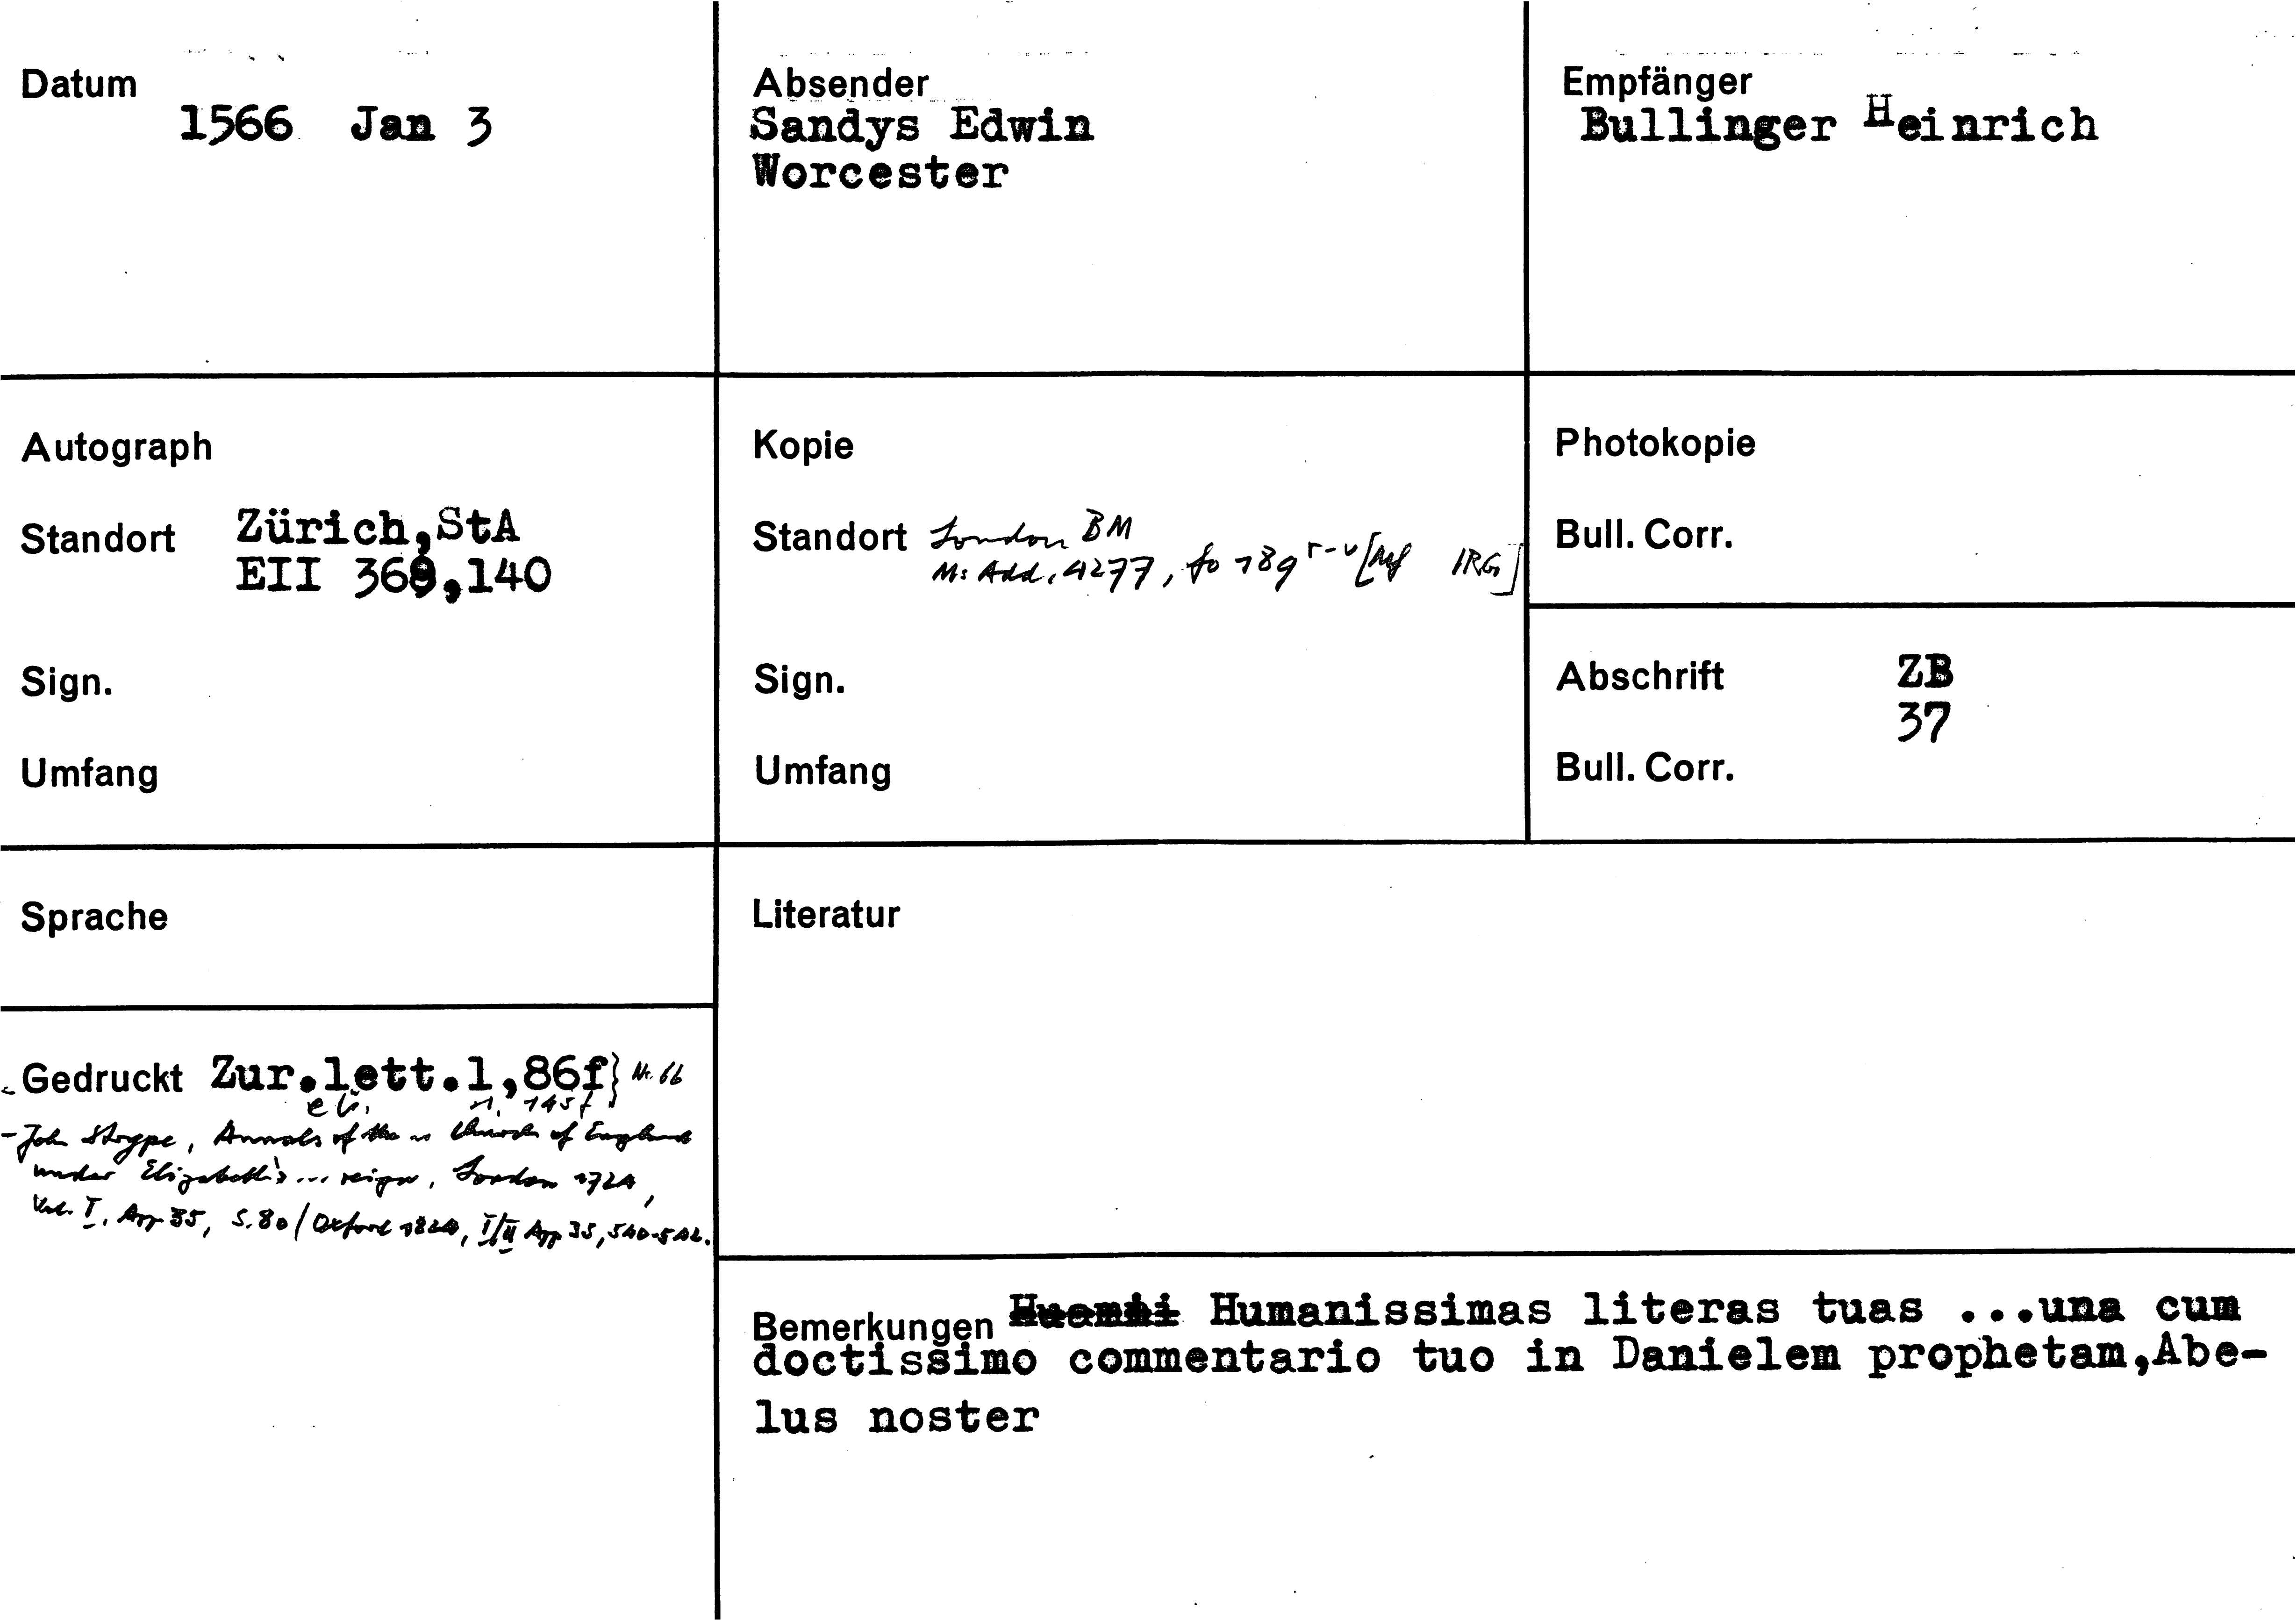 Datum
1566 Jan 3
Absender
Sandys Edwin
Worcester
Empfänger
Bullinger Heinrich
Autograph
Standort Zürich,StA
EII 369,140
Sign.
Umfang
Kopie
Standort London BM
Ms Add. 4277, fo 189 r-v [ IRG]
Sign.
Umfang
Photokopie
Bull. Corr.
Abschrift ZB
37
Bull. Corr.
Sprache
Literatur
Gedruckt Zur.lett.1,86f} Nr. 66
1, 145f
- John Strype, Annals of the Church of England
under Elizabeth's ... reign, London 1724,
Vol. I, App 35, S.80 / Oxford 1824, I/II App 35, 540-542.
Bemerkungen Humanissimas literas tuas ...una cum
doctissimo commentario tuo in Danielem prophetam,Abe-
lus noster